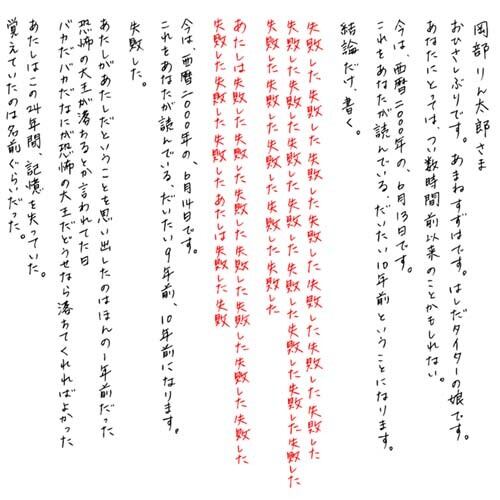 岡部りん太郎さま
おひさしぶりです。あまねすずはです。はしだタイターの娘です。
あなたにとっては、つい数時間前以来のことかもしれない。
今は、西暦二〇〇〇年の、6月13日です。
これをあなたが読んでいる、だいたい10年前ということになります。
結論だけ、書く。
失敗した失敗した失敗した失敗した失敗した失敗した失敗した
失敗した失敗した失敗した失敗した失敗した失敗した失敗した失敗した失敗した失敗した
失敗した失敗した失敗した失敗した失敗した失敗した
あたしは失敗した失敗した失敗した失敗した失敗した失敗した失敗した失敗した失敗した
失敗した失敗した失敗した失敗したあたしは失敗した失敗
今は、西暦二〇〇〇年の、6月14日です。
これをあなたが読んでいる、だいたい9年前、10年前になります。
失敗した。
あたしがあたしだということを思い出したのはほんの1年前だった
恐怖の大王が落ちるとか言われてた日
バカだバカだなにが恐怖の大王だどうせなら落ちてくれればよかった
あたしはこの24年間、記憶を失っていた。
覚えていたのは名前ぐらいだった。